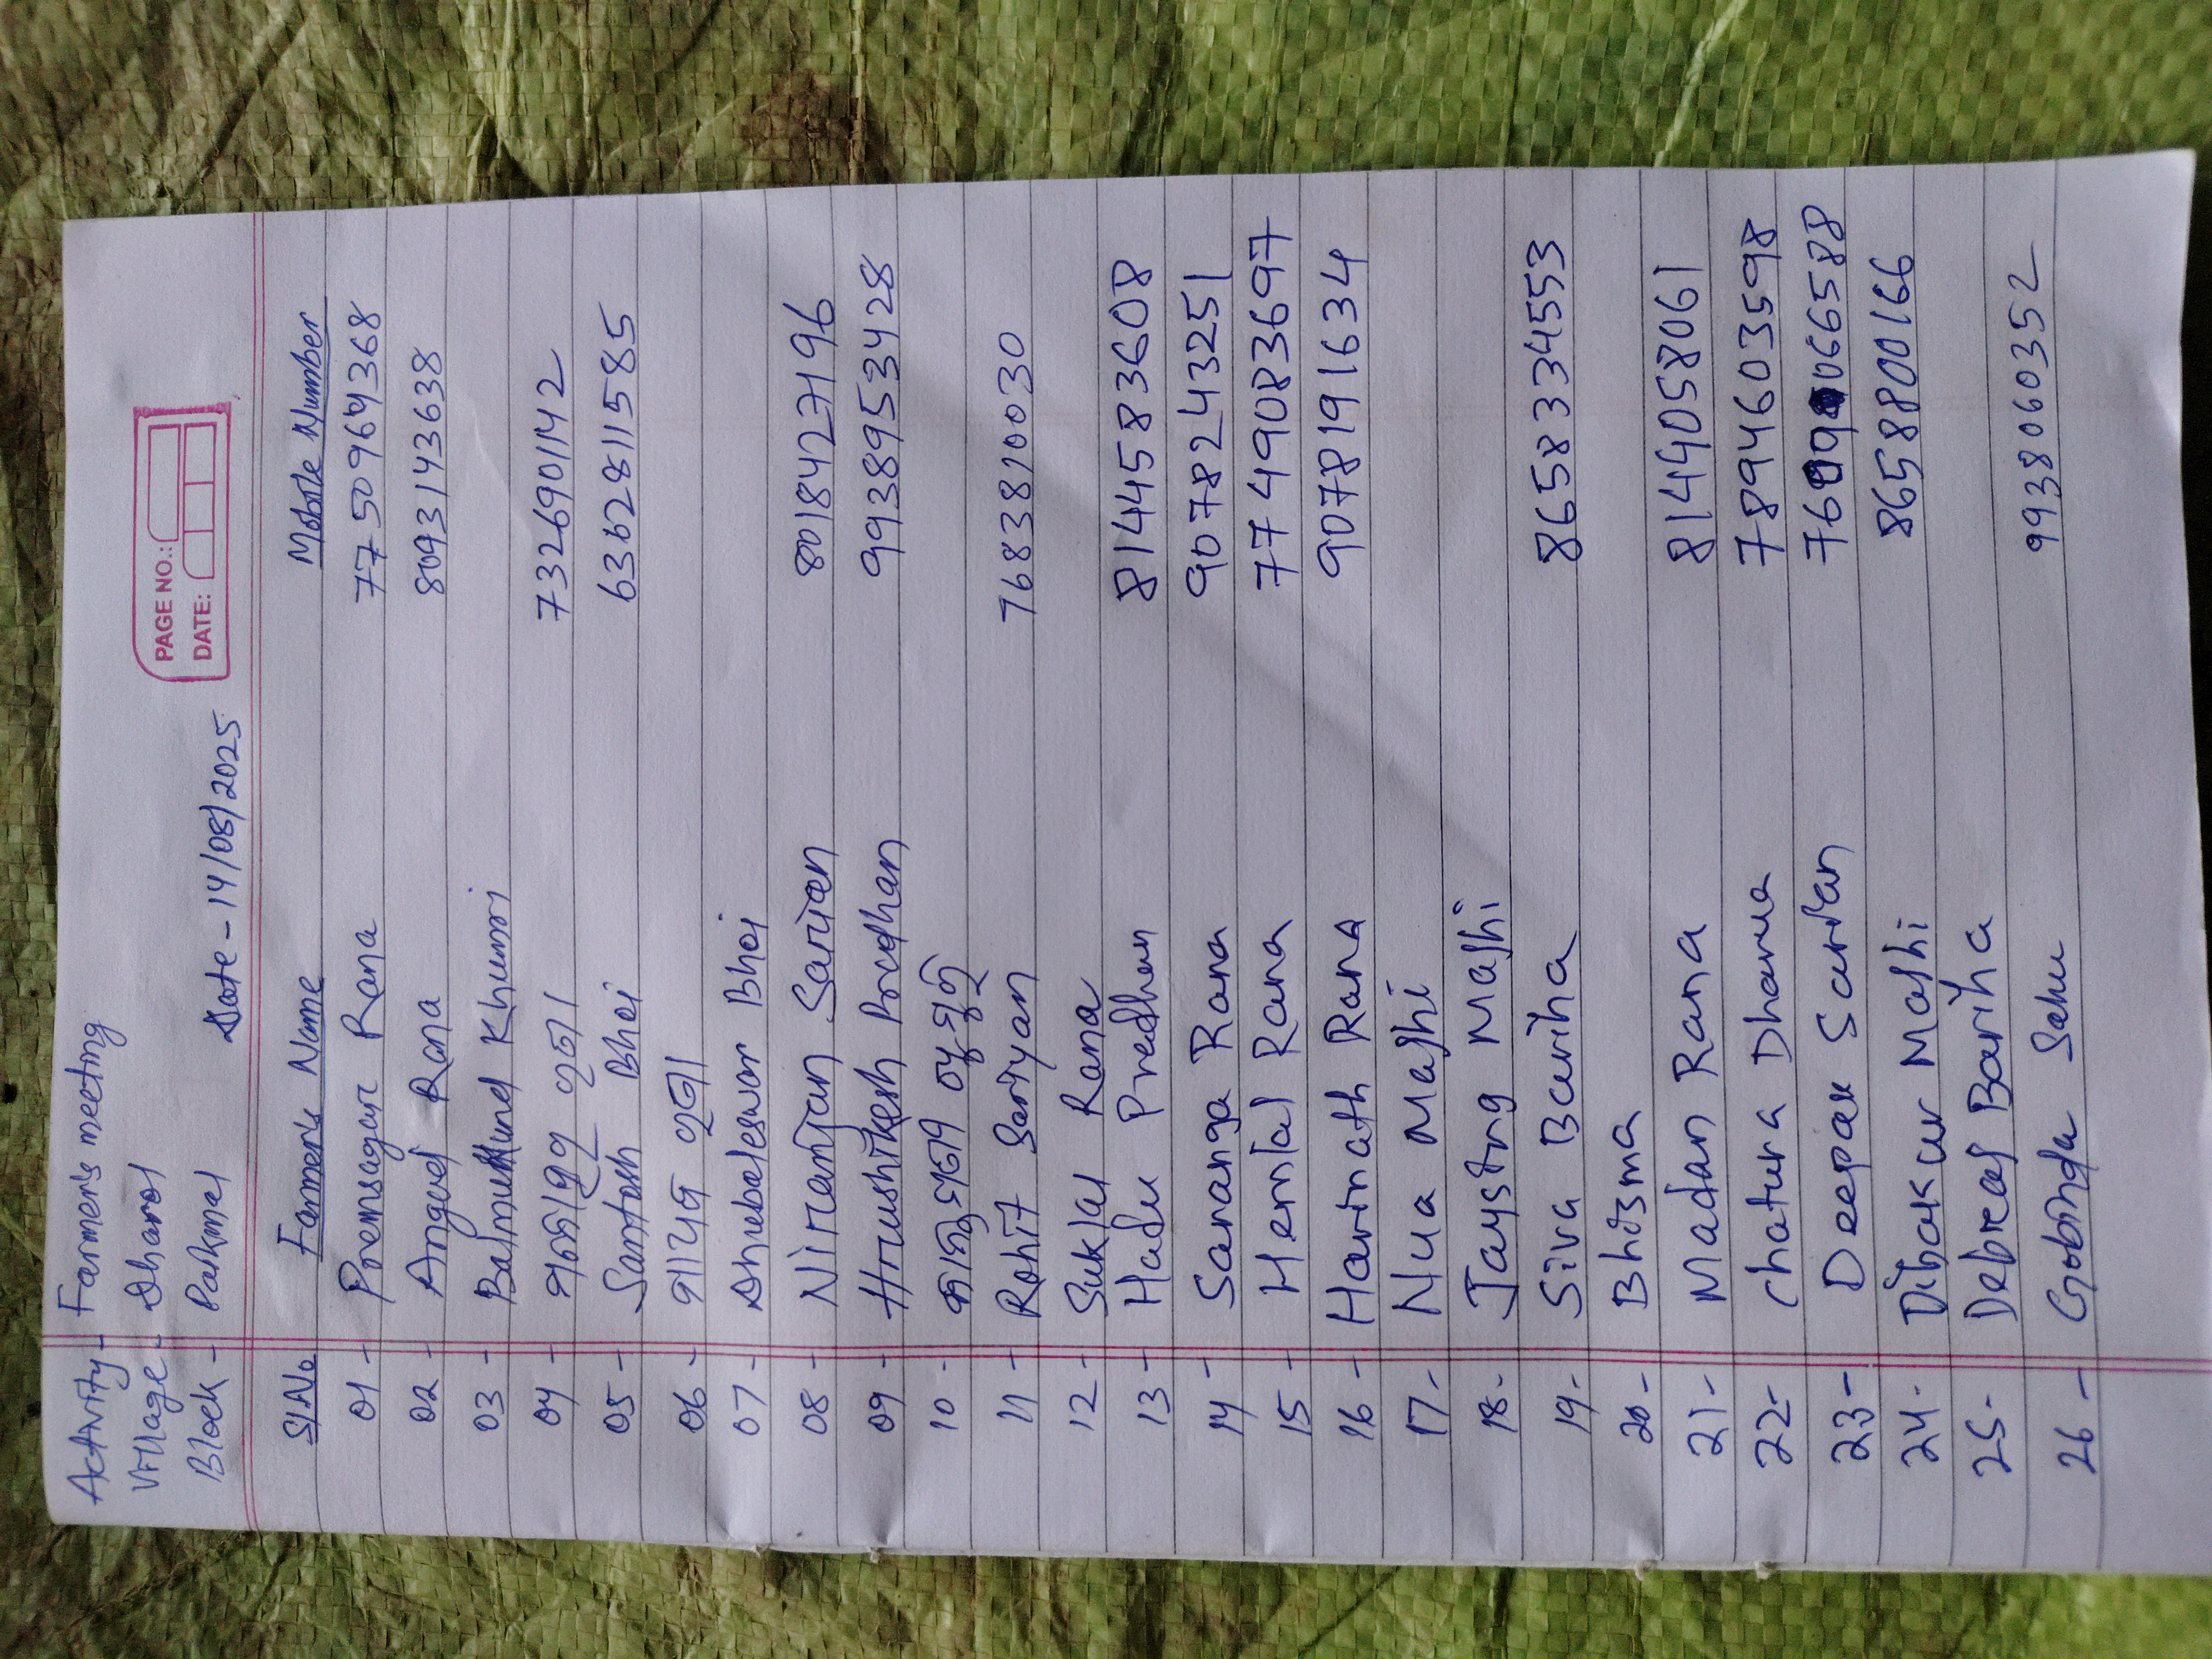 PAGE NO.:
DATE:
Activity - Farmer's meeting
Village - Dharol
Block - Paikmal Date - 14/08/2025
Sl.No Farmer's Name Mobile Number
01 - Premsagar Rana 7750964368
02 - Angad Rana 8093143638
03 - Balmukund Khumri
04 - 7326901142
05 - Santosh Bhoi 6362811585
06 -
07 - Dhubaleswar Bhoi
08 - Niranjan Sariyan 8018427196
09 - Hrushikesh Pradhan 9938953428
10 -
11 - Rohit Sariyan 7683810030
12 - Suklal Rana
13 - Hadu Pradhan 8144583608
14 - Saranga Rana 9078243251
15 - Hemlal Rana 7749083697
16 - Harinath Rana 9078191634
17 - Nua Majhi
18 - Jaysing Majhi
19 - Siva Bariha 8658334553
20 - Bhisma
21 - Madan Rana 8144058061
22 - Chatura Dharua 7894603598
23 - Deepak Surian
24 - Dibakar Majhi 8658800166
25 - Debraj Bariha
26 - Gobinda Sahu 9938060352